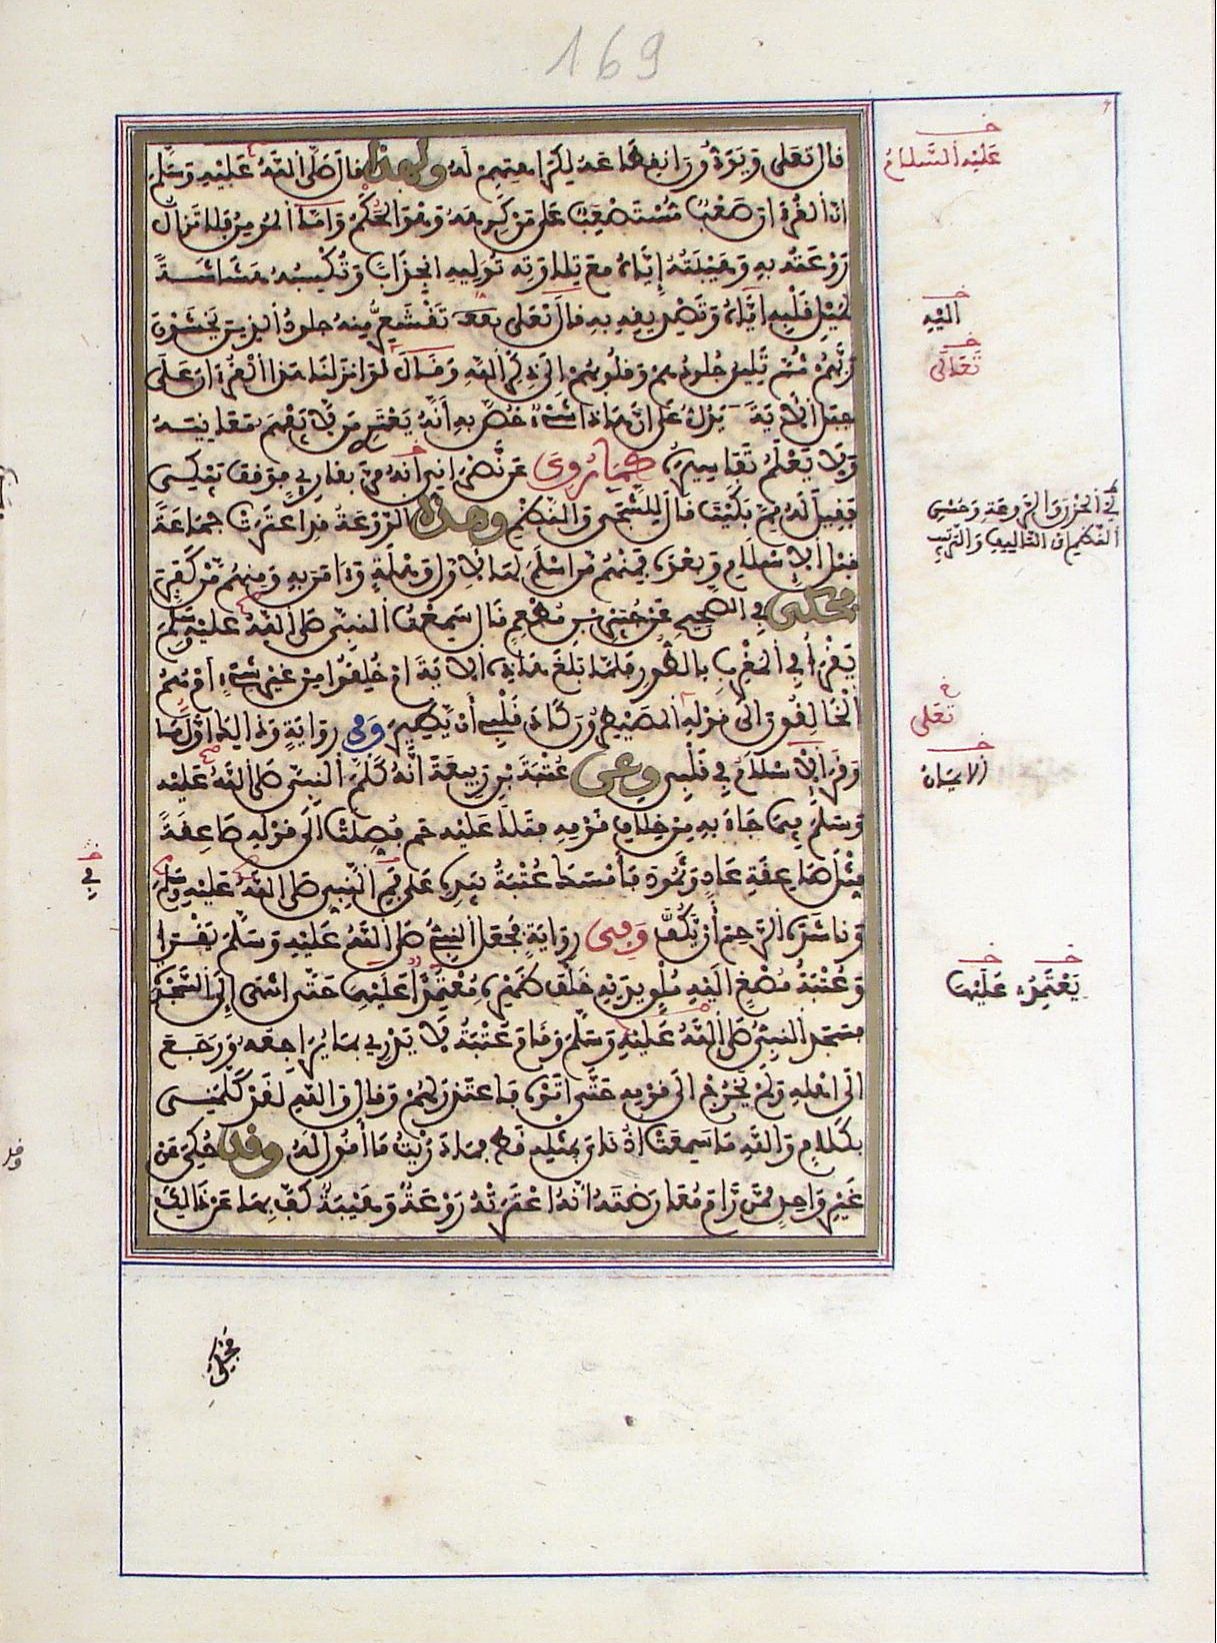 169
قال تعلى ويودون انقطاعه لكراهتهم له ولهذا قال صلى الله عليه وسلم
ان القرءان صعب مستصعب على من كرهه وهو الحكم واما المومن فلا تزال
روعته به وهيبته اياه مع تلاوته توليه انجذابا وتكسبه هشاشة
لميل قلبه اليه وتصديقه به قال تعلى تقشعر منه جلود الذين يخشون
ربهم ثم تلين جلودهم وقلوبهم الى ذكر الله وقال لو انزلنا هذا القرءان على
جبل الاية يدل على ان هذا شيء خص به انه يعتري من لا يفهم معانيه
ولا يعلم تفاسيره كما روي عن نصراني انه مر بقاري فوقف يبكي
فقيل له مم بكيت قال للشجى والنظم وهذه الروعة قد اعترت جماعة
قبل الاسلام وبعده فمنهم من اسلم لها لاول وهلة وءامن به ومنهم من كفر
فحكى في الصحيح عن جبير بن مطعم قال سمعت النبي صلى الله عليه وسلم
يقرا في المغرب بالطور فلما بلغ هذه الاية ام خلقوا من غير شيء ام هم
الخالقون الى قوله المصيطرون كاد قلبي ان يطير وفي رواية وذلك اول ما
وقر الاسلام في قلبي وعن عتبة بن ربيعة انه كلم النبي صلى الله عليه
وسلم فيما جاء به من خلاف قومه فتلا عليه حم فصلت الى قوله صاعقة
مثل صاعقة عاد وثمود فامسك عتبة بيده على فم النبي صلى الله عليه وسلم
وناشده الرحم ان يكف وفي رواية فجعل النبي صلى الله عليه وسلم يقرا
وعتبة مصغ اليه ملق يديه خلف ظهره معتمدا عليها حتى انتهى الى السجدة
فسجد النبي صلى الله عليه وسلم وقام عتبة لا يدري بما يراجعه ورجع
الى اهله ولم يخرج الى قومه حتى اتوه فاعتذر لهم وقال والله لقد كلمني
بكلام والله ما سمعت اذناي بمثله قط فما دريت ما اقول له وقد حكي عن
غير واحد ممن رام معارضته انه اعترته روعة وهيبة كف بها عن ذالك
عليه السلام
اليه
تعالى
تعلى
الايمان
يعتمد عليهما
في